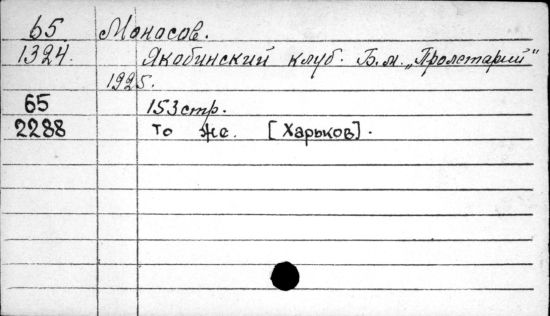 65. Моносов.
1324. Якобинский клуб. Б.м. „Пролетарий"
1925.
65 153 стр.
2288 То же. [Харьков].